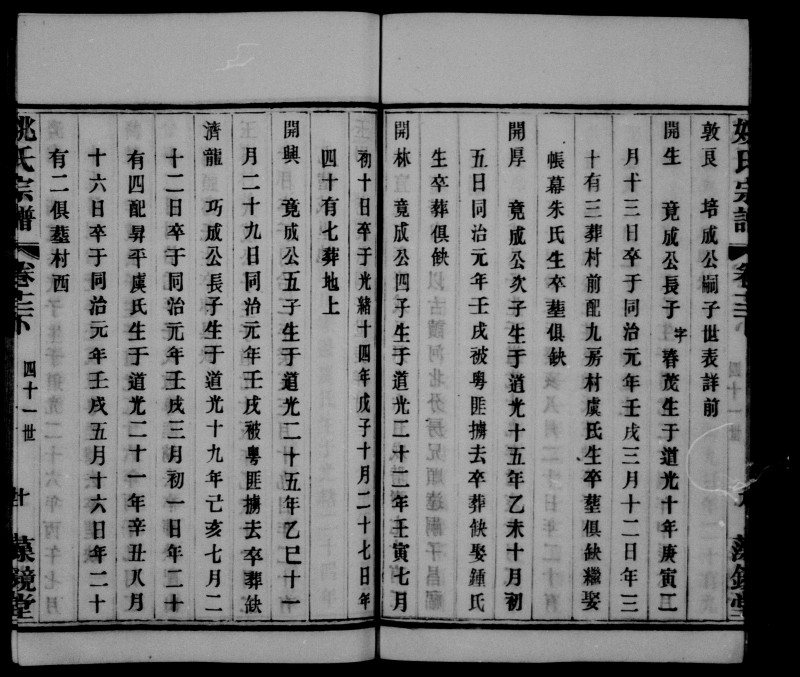 姚氏宗譜 卷三下 四十一世 九 藻鏡堂
敦艮 培成公嗣子世表詳前
開生 竟成公長子字春茂生于道光十年庚寅三
月十三日卒于同治元年壬戌三月十二日年三
十有三葬村前配九房村虞氏生卒塟俱缺繼娶
帳幕朱氏生卒塟俱缺
開厚 竟成公次子生于道光十五年乙未十月初
五日同治元年壬戌被粵匪擄去卒葬缺娶鍾氏
生卒葬俱缺
開林 竟成公四子生于道光二十二年壬寅七月
初十日卒于光緒十四年戊子十月二十七日年
四十有七葬地上
開興 竟成公五子生于道光二十五年乙巳十一
月二十九日同治元年壬戌被粵匪擄去卒葬缺
濟龍 巧成公長子生于道光十九年己亥七月二
十二日卒于同治元年壬戌三月初一日年二十
有四配昇平虞氏生于道光二十一年辛丑八月
十六日卒于同治元年壬戌五月十六日年二十
有二俱塟村西
姚氏宗譜 卷三下 四十一世 十 藻鏡堂